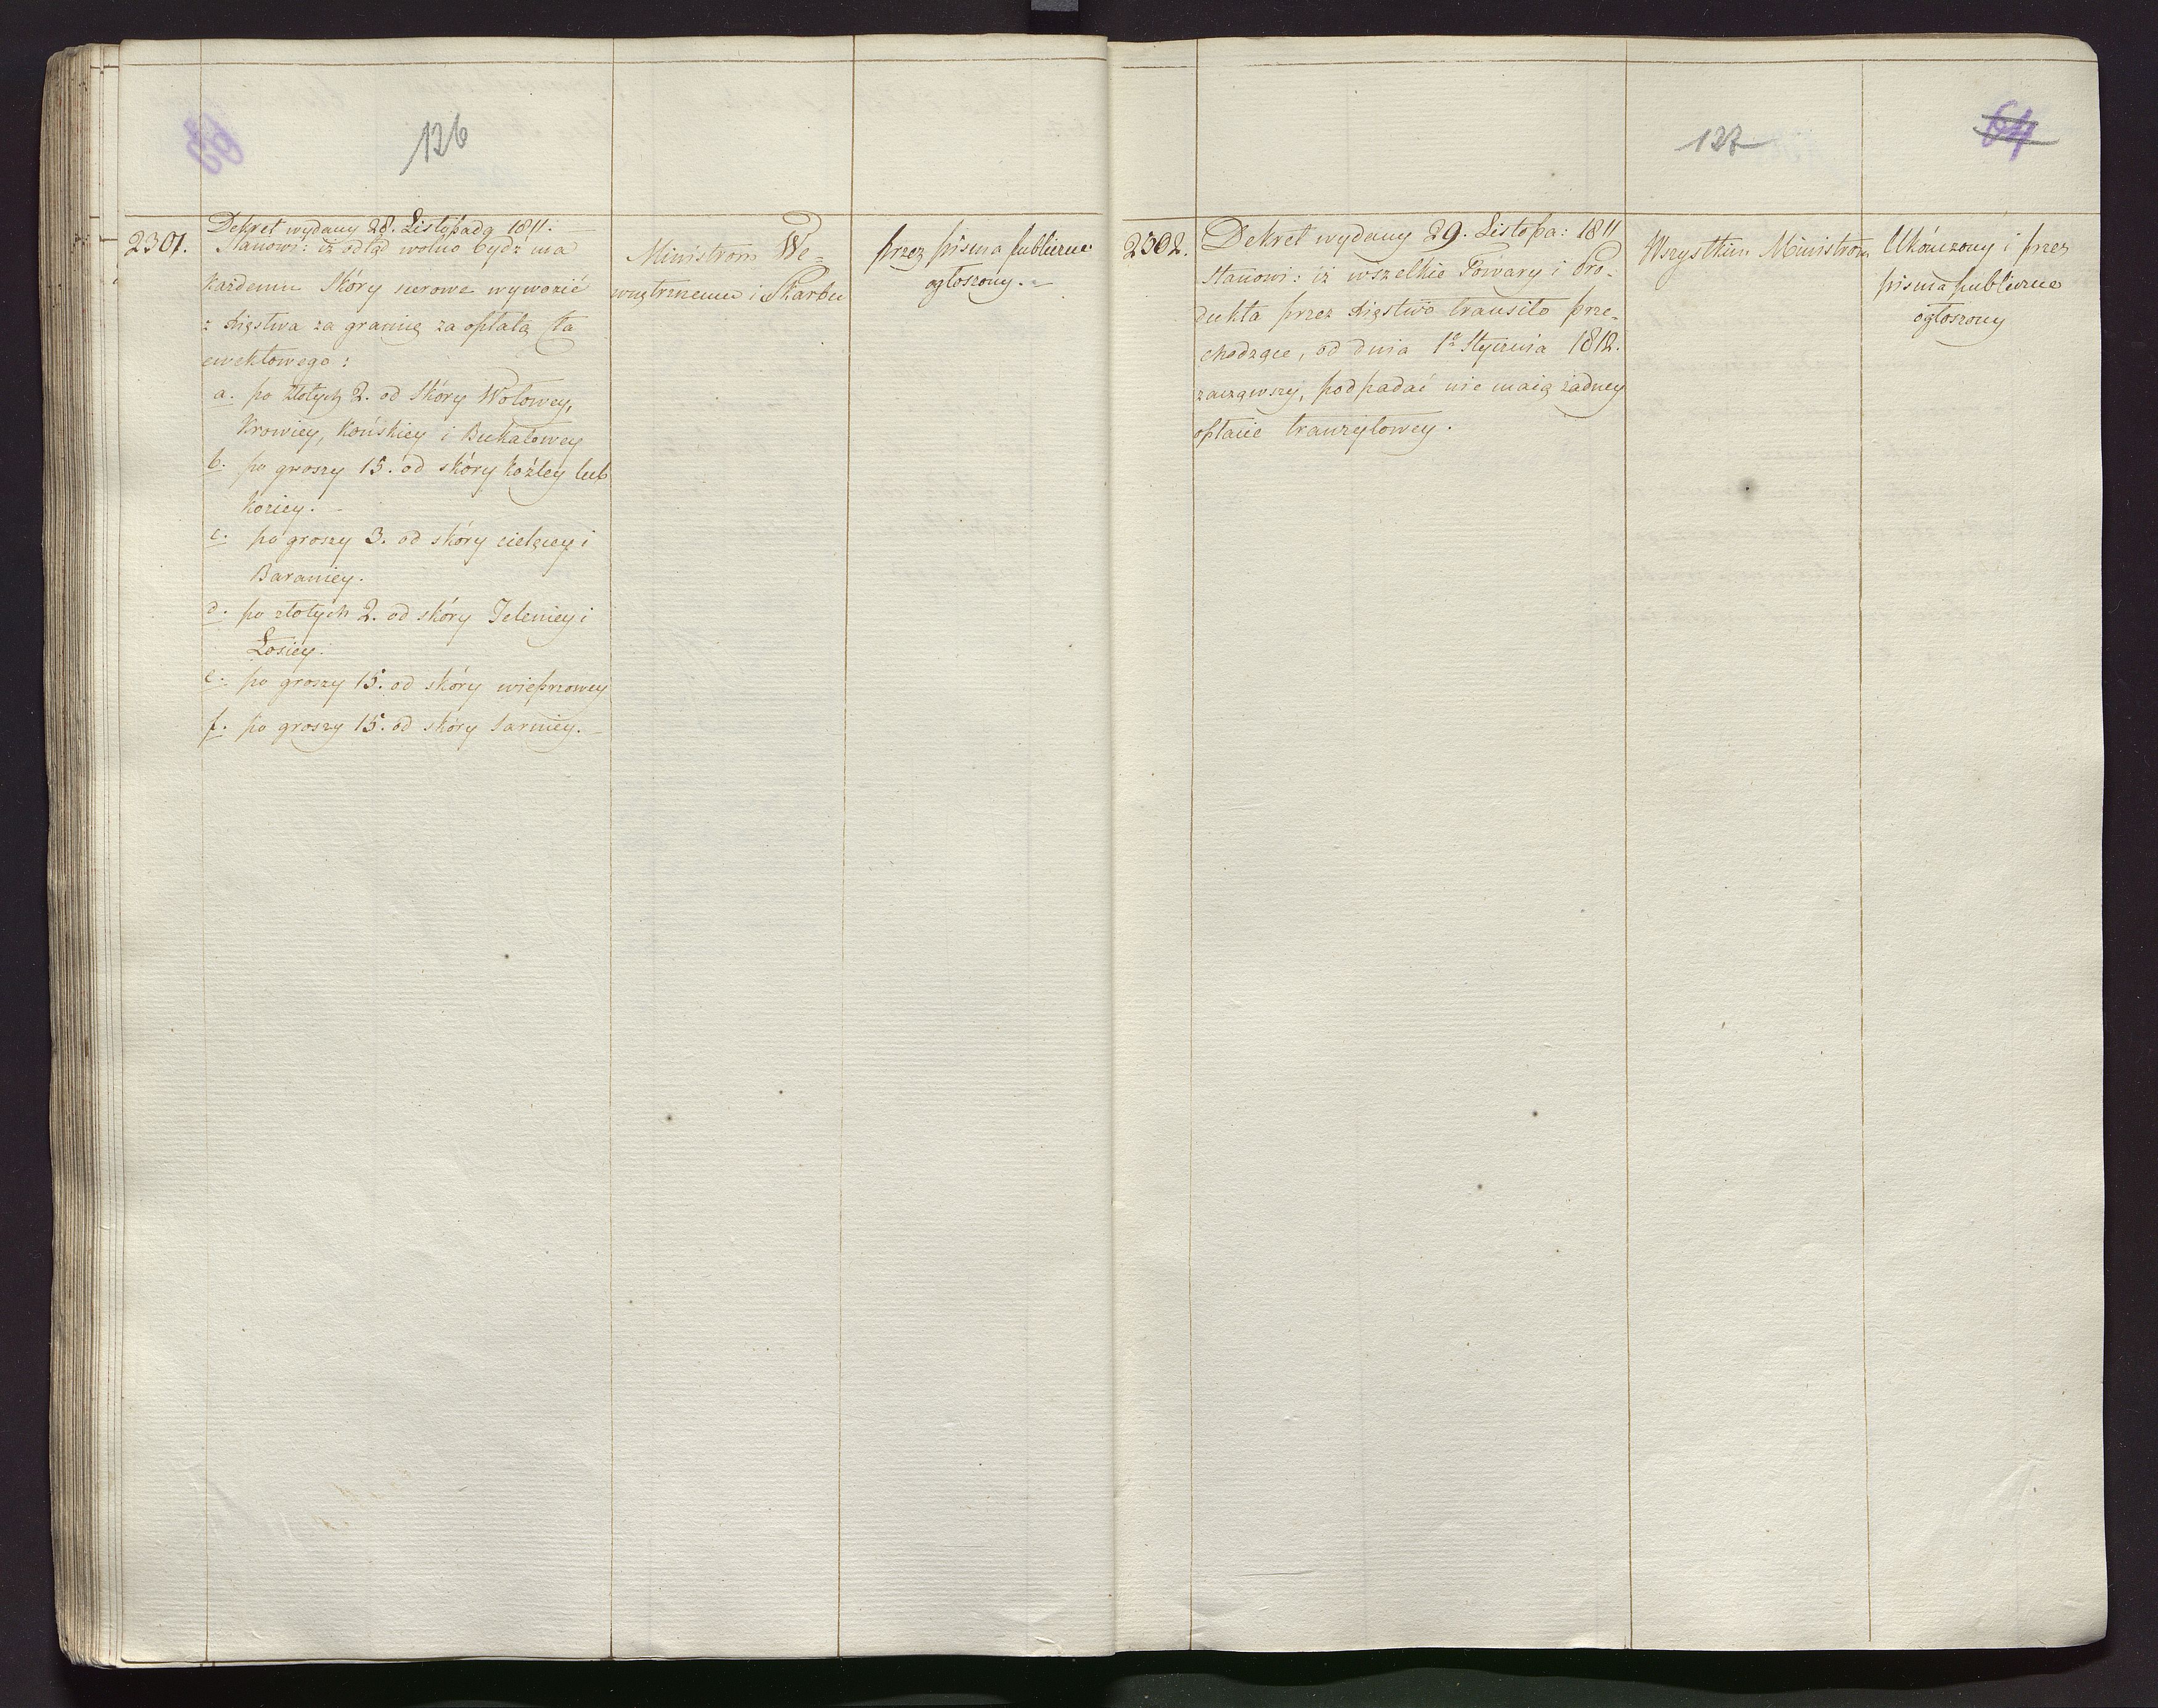 126
2301.
Dekret wydany 28. Listopada 1811.
Stanowi: iż odtąd wolno bydź ma
każdemu Skóry surowe wywozić
z Xięstwa za granię za opłatą Cła
ewektowego:
a. po złotych 2. od Skóry Wołowey,
Krowiey, Końskiey i Bukatowey
b. po groszy 15. od skóry koźley lub
koziey. -
c. po groszy 3. od skóry cielęcey i
Baraniey.
d. po złotych 2. od skóry Jeleniey i
Łosiey.
e. po groszy 15. od skóry wieprzowey
f. po groszy 15. od skóry sarniey. -
Ministrom We=
wnętrznemu i Skarbu
przez pisma publiczne
ogłoszony. -
127
64
2302.
Dekret wydany 29. Listopa: 1811
Stanowi: iż wszelkie Towary i Pro-
dukta przez Xięstwo transito prze-
chodzące, od dnia 1º Stycznia 1812.
zacząwszy, podpadać nie maią żadney
opłacie tranzytowey.
Wszystkim Ministrom
Ukończony i przez
pisma publiczne
ogłoszony